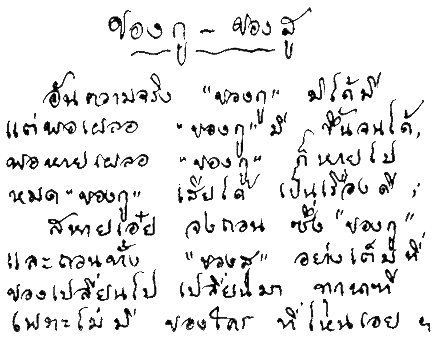 ของกู - ของสู
อันความจริง "ของกู" มิได้มี
แต่พอเผลอ "ของกู" มี ขึ้นจนได้,
พอหายเผลอ "ของกู" ก็หายไป
หมด "ของกู" เสียได้ เป็นเรื่องดี ;
สหายเอ๋ย จงถอน ซึ่ง "ของกู"
และถอนทั้ง "ของสู" อย่างเต็มที่
ของเปลี่ยนไป เปลี่ยนมา
เพราะไม่มี ของใคร ที่ไหนเอย ฯ